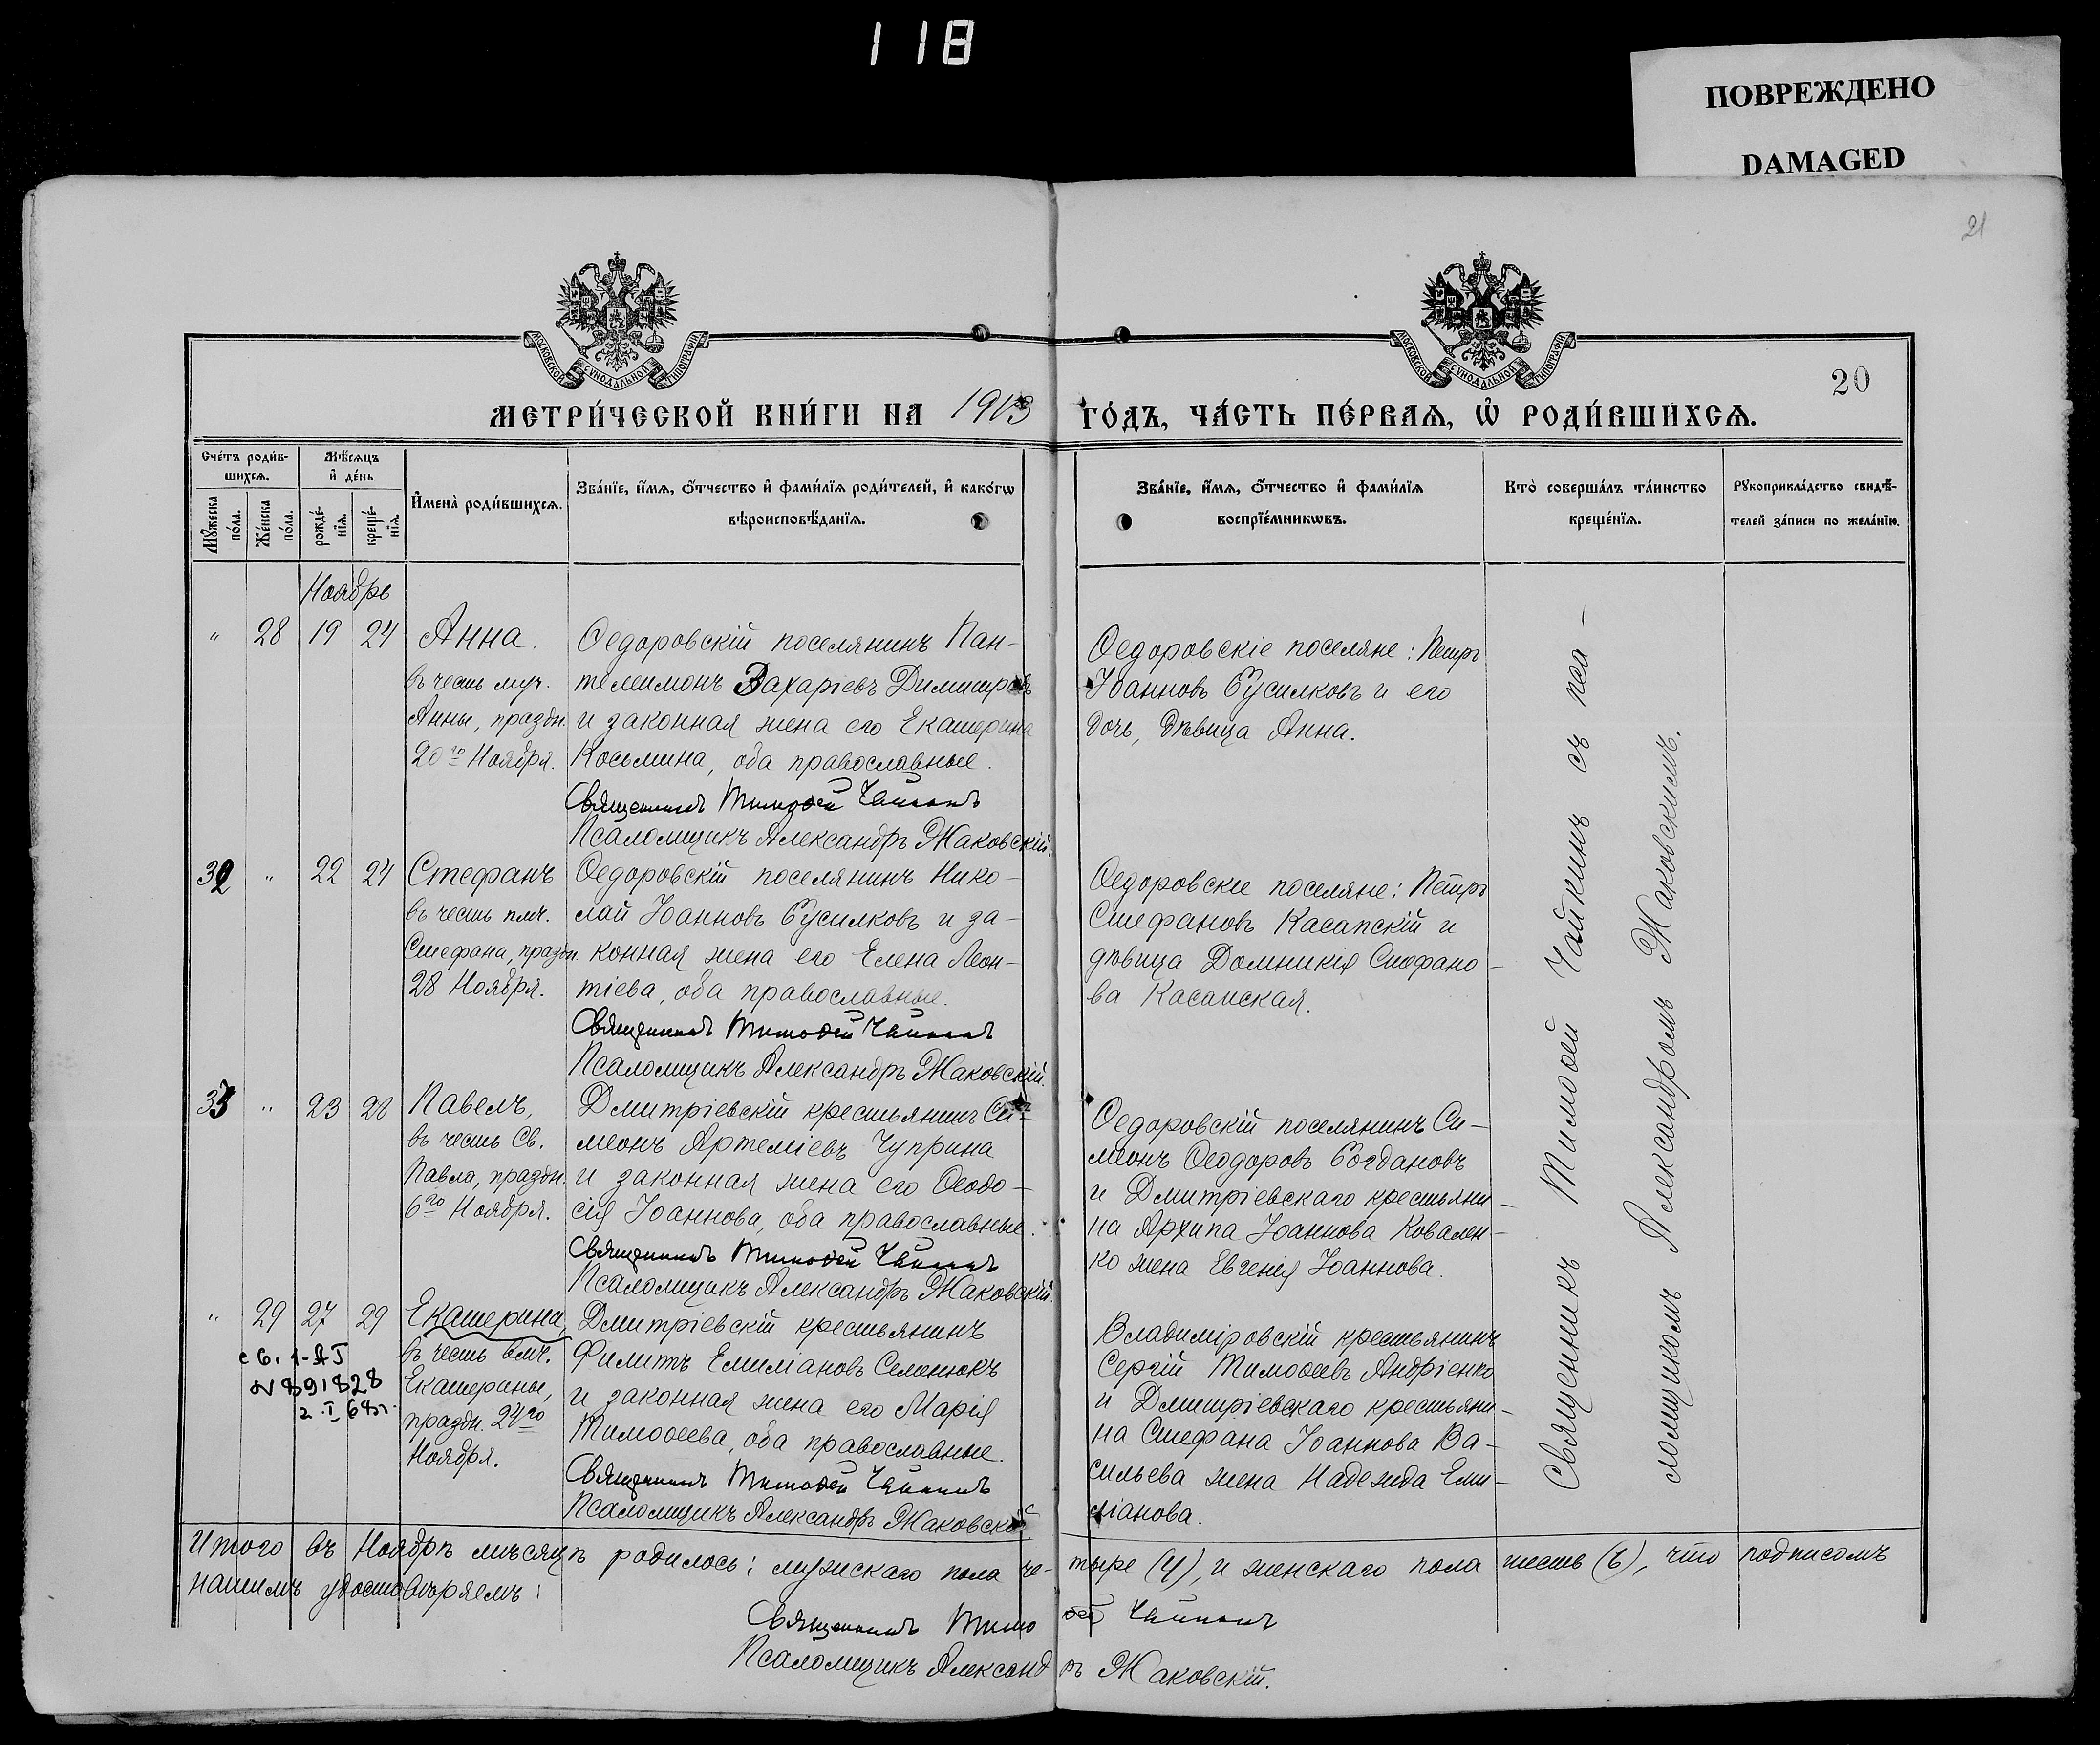 118
ПОВРЕЖДЕНО
DAMAGED
21
20
МОСКОВСКОЙ СУНОДАЛЬНОЙ ТИПОГРАФІИ
МОСКОВСКОЙ СУНОДАЛЬНОЙ ТИПОГРАФІИ
МЕТРИ́ЧЕСКОЙ КНИ́ГИ НА 1913 ГО́ДЪ, ЧА́СТЬ ПЕ́РВАѦ, Ѽ РОДИ́ВШИХСѦ.
Сче́тъ роди́в-
шихсѧ.
Мѣ́сѧцъ
и҆ де́нь
Мꙋ́жеска
по́ла.
Же́нска
по́ла.
рожде́-
нїѧ.
креще́-
нїѧ.
И҆мена̀ роди́вшихсѧ.
Зва́нїе, и҆́мѧ, ѻ҆́тчество и҆ фами́лїѧ роди́телей, и҆ како́гѡ
вѣроисповѣ́данїѧ.
Зва́нїе, и҆́мѧ, ѻ҆́тчество и҆ фами́лїѧ
воспрїе́мникѡвъ.
Кто̀ соверша́лъ та́инство
креще́нїѧ.
Рꙋкоприкла́дство свидѣ́-
телей за́писи по жела́нїю.
Ноябрь
" 28 19 24 Анна.
въ честь муч.
Анны, праздн.
20го Ноября.
Ѳедоровскій поселянинъ Пан-
телеимонъ Захаріевъ Димитровъ
и законная жена его Екатерина
Косьмина, оба православные.
Священникъ Тимоѳей Чайкинъ
Псаломщикъ Александръ Жаковскій.
Ѳедоровскіе поселяне: Петръ
Іоанновъ Бусилковъ и его
дочь, дѣвица Анна.
32 " 22 24 Стефанъ
въ честь пмч.
Стефана, праздн.
28 Ноября.
Ѳедоровскій поселянинъ Нико-
лай Іоанновъ Бусилковъ и за-
конная жена его Елена Леон-
тіева, оба православные.
Священникъ Тимоѳей Чайкинъ
Псаломщикъ Александръ Жаковскій.
Ѳедоровскіе поселяне: Петръ
Стефановъ Касапскій и
дѣвица Домникія Стефано-
ва Касапская.
33 " 23 28 Павелъ,
въ честь Св.
Павла, праздн.
6го Ноября.
Дмитріевскій крестьянинъ Си-
меонъ Артеміевъ Чуприна
и законная жена его Ѳеодо-
сія Іоаннова, оба православные.
Священникъ Тимоѳей Чайкинъ
Псаломщикъ Александръ Жаковскій.
Ѳедоровскій поселянинъ Си-
меонъ Ѳеодоровъ Богдановъ
и Дмитріевскаго крестьяни-
на Архипа Іоаннова Ковален-
ко жена Евгенія Іоаннова.
" 29 27 29 Екатерина,
въ честь вмч.
Екатерины,
праздн. 24го
Ноября.
с6. 1-АЗ
N 891828
2.I 68г.
Дмитріевскій крестьянинъ
Филиппъ Емиліановъ Семенюкъ
и законная жена его Марія
Тимоѳеева, оба православные.
Священникъ Тимоѳей Чайкинъ
Псаломщикъ Александръ Жаковскій
Владиміровскій крестьянинъ
Сергій Тимоѳеевъ Андріенко
и Дмитріевскаго крестьяни-
на Стефана Іоаннова Ва-
сильева жена Надежда Еми-
ліанова.
Священникъ Тимоѳей Чайкинъ съ пса-
ломщикомъ Александромъ Жаковскимъ.
Итого въ Ноябрѣ мѣсяцѣ родилось: мужскаго пола че-тыре (4), и женскаго пола шесть (6), что подписомъ
нашимъ удостовѣряемъ:
Священникъ Тимоѳей Чайкинъ
Псаломщикъ Александръ Жаковскій.